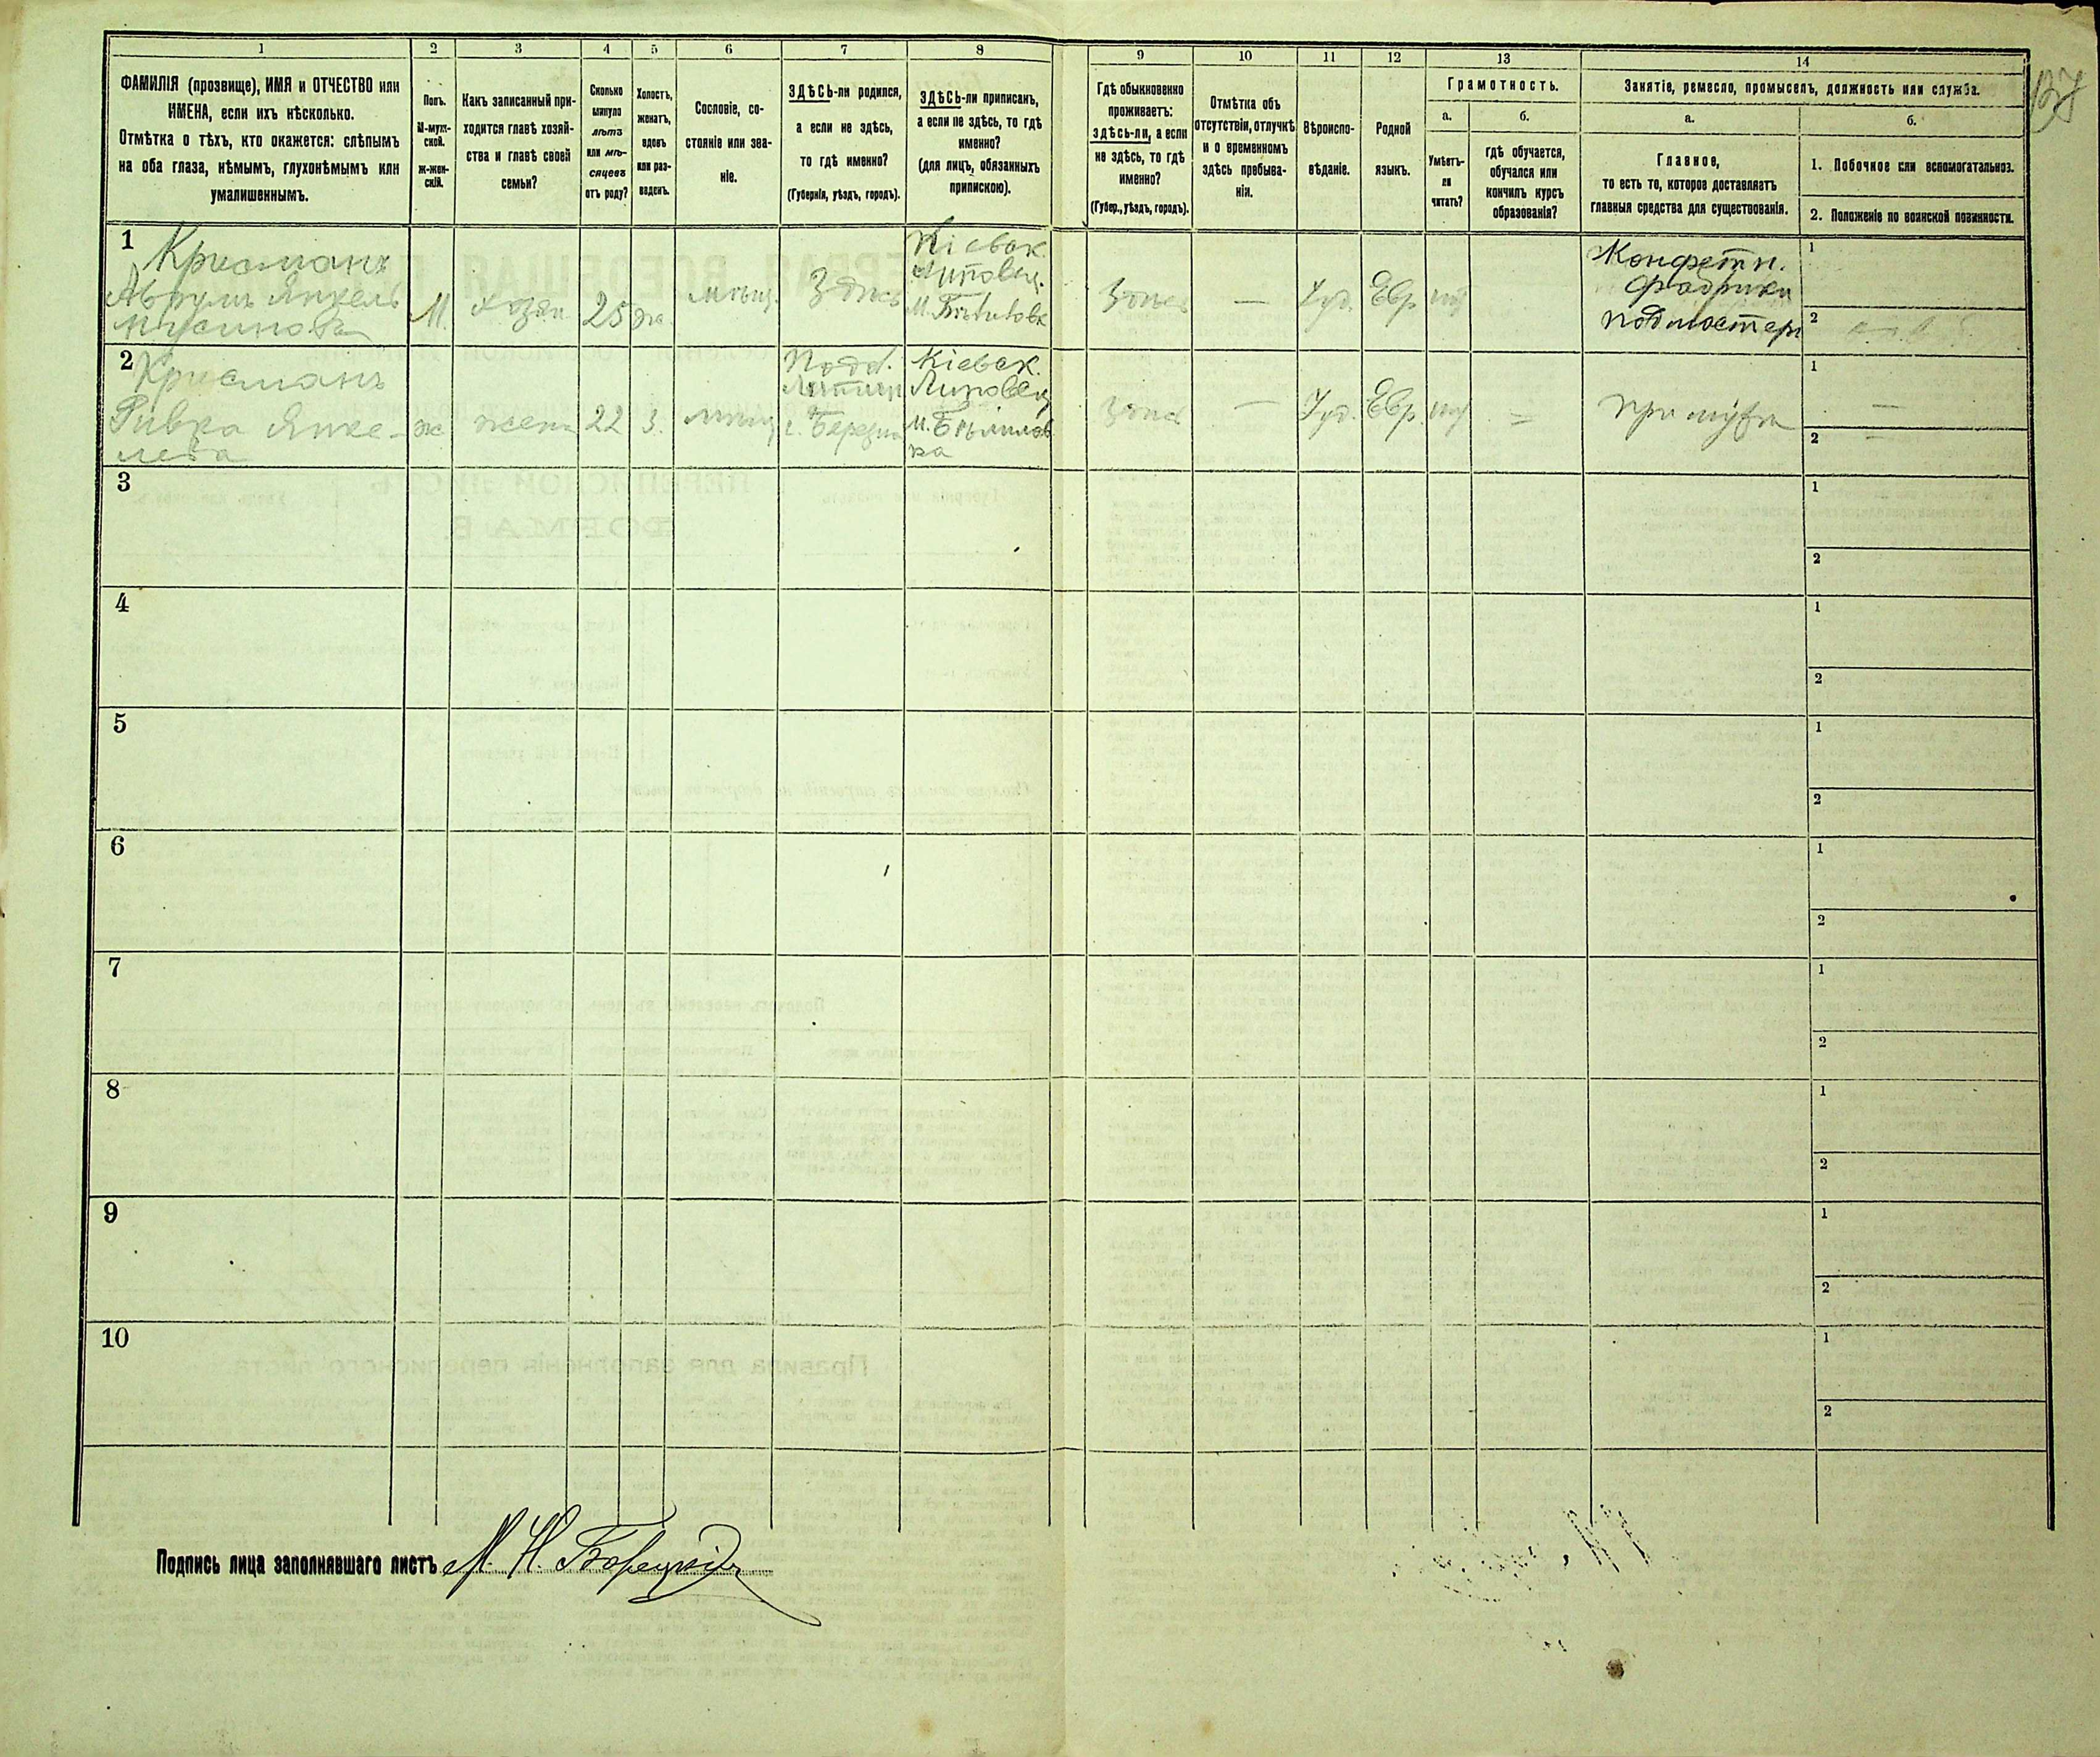 1 2 3 4 5 6 7 8 9 10 11 12 13 14
ФАМИЛІЯ (прозвище), ИМЯ и ОТЧЕСТВО или
ИМЕНА, если ихъ нѣсколько.
Отмѣтка о тѣхъ, кто окажется: слѣпымъ
на оба глаза, нѣмымъ, глухонѣмымъ или
умалишеннымъ.
Полъ.
М-муж-
ской.
ж-жен-
скій.
Какъ записанный при-
ходится главѣ хозяй-
ства и главѣ своей
семьи?
Сколько
минуло
лѣтъ
или мѣ-
сяцевъ
отъ роду?
Холостъ,
женатъ,
вдовъ
или раз-
веденъ.
Сословіе, со-
стояніе или зва-
ніе.
ЗДѢСЬ-ли родился,
а если не здѣсь,
то гдѣ именно?
(Губернія, уѣздъ, городъ).
ЗДѢСЬ-ли приписанъ,
а если не здѣсь, то гдѣ
именно?
(для лицъ, обязанныхъ
припискою).
Гдѣ обыкновенно
проживаетъ:
здѣсь-ли, а если
не здѣсь, то гдѣ
именно?
(Губер., уѣздъ, городъ).
Отмѣтка объ
отсутствіи, отлучкѣ
и о временномъ
здѣсь пребыва-
ніи.
Вѣроиспо-
вѣданіе.
Родной
языкъ.
Грамотность.
а.
Умѣетъ-
ли
читать?
б.
гдѣ обучается,
обучался или
кончилъ курсъ
образованія?
Занятіе, ремесло, промыселъ, должность или служба.
а.
Главное,
то есть то, которое доставляетъ
главныя средства для существованія.
б.
1. Побочное или вспомогательное.
2. Положеніе по воинской повинности.
127
1
Крисманъ
Аврумъ Янкель
М.
хозяи
25
же.
мѣщ.
Здѣсь
Кіевск.
Липовец.
Здѣсь
—
Іуд.
Евр
Конфетн.
фабрики
подмастерь
1
2
2
Крисманъ
Ривка Янке-
лева
ж
жена
22
З.
мѣщ
Подол.
г. Березна
Кіевск.
Липовец
Здѣсь
—
Іуд.
Евр.
=
при мужѣ
1 —
2 —
3
1
2
4
1
2
5
1
2
6
1
2
7
1
2
8
1
2
9
1
2
10
1
2
Подпись лица заполнявшаго листъ М. Н. Борецкій